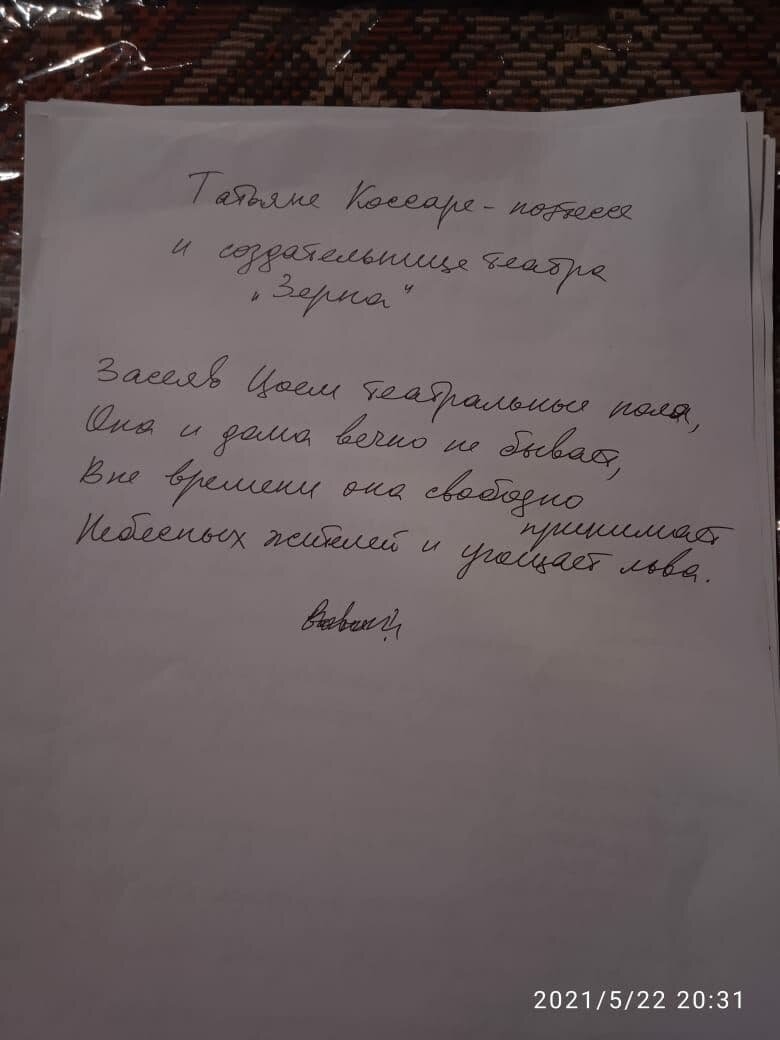 Татьяне Коссаре - поэтессе
и создательнице театра
"Зерна"
Засеяв Цоем театральные поля,
Она и дома вечно не бывает,
Вне времени она свободно
принимает
Небесных жителей и угощает льва.
2021/5/22 20:31